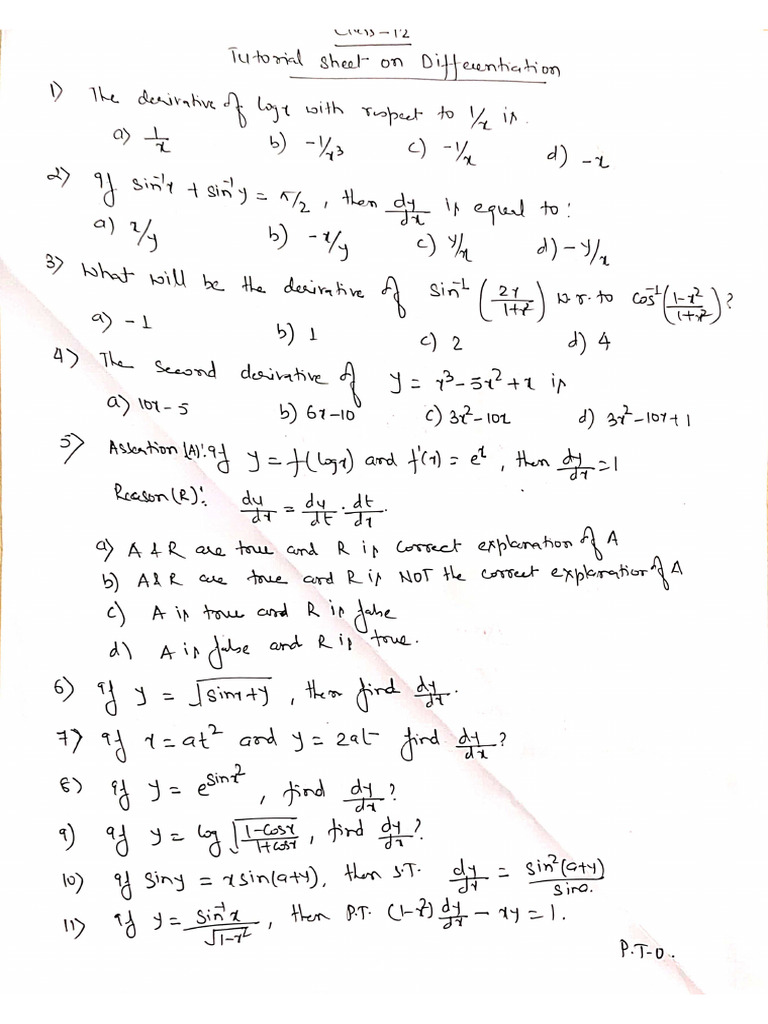 Class-12
Tutorial sheet on Differentiation
1) The derivative of logx with respect to 1/x is.
a) 1/x b) -1/x3 c) -1/x d) -x
2) If sin⁻¹x + sin⁻¹y = π/2, then dy/dx is equal to:
a) x/y b) -x/y c) y/x d) -y/x
3) What will be the derivative of sin⁻¹(2x/1+x²) w.r.to cos⁻¹(1-x²/1+x²)?
a) -1 b) 1 c) 2 d) 4
4) The second derivative of y = x³-5x²+x is
a) 10x-5 b) 6x-10 c) 3x²-10x d) 3x²-10x+1
5) Assertion (A): If y = f(logx) and f'(x) = eˣ, then dy/dx = 1
Reason (R): dy/dx = dy/dt . dt/dx.
a) A & R are true and R is correct explanation of A
b) A & R are true and R is NOT the correct explanation of A
c) A is true and R is false
d) A is false and R is true.
6) If y = √sinx+y, then find dy/dx.
7) If x = at² and y = 2at find dy/dx?
8) If y = e^sinx², find dy/dx?
9) If y = log √1-cosx/1+cosx, find dy/dx?
10) If siny = xsin(a+y), then S.T. dy/dx = sin²(a+y)/sina.
11) If y = sin⁻¹x/√1-x², then P.T. (1-x²) dy/dx - xy = 1.
P.T-O.